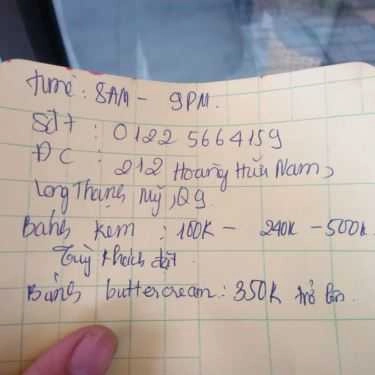 time : 8AM - 9PM.
SĐT : 0122 5664159
ĐC : 212 Hoàng Hữu Nam,
Long Thạnh Mỹ, Q9
Bánh kem : 160K - 240K - 500K
Tuỳ khách đặt
Bánh buttercream : 350K trở lên.